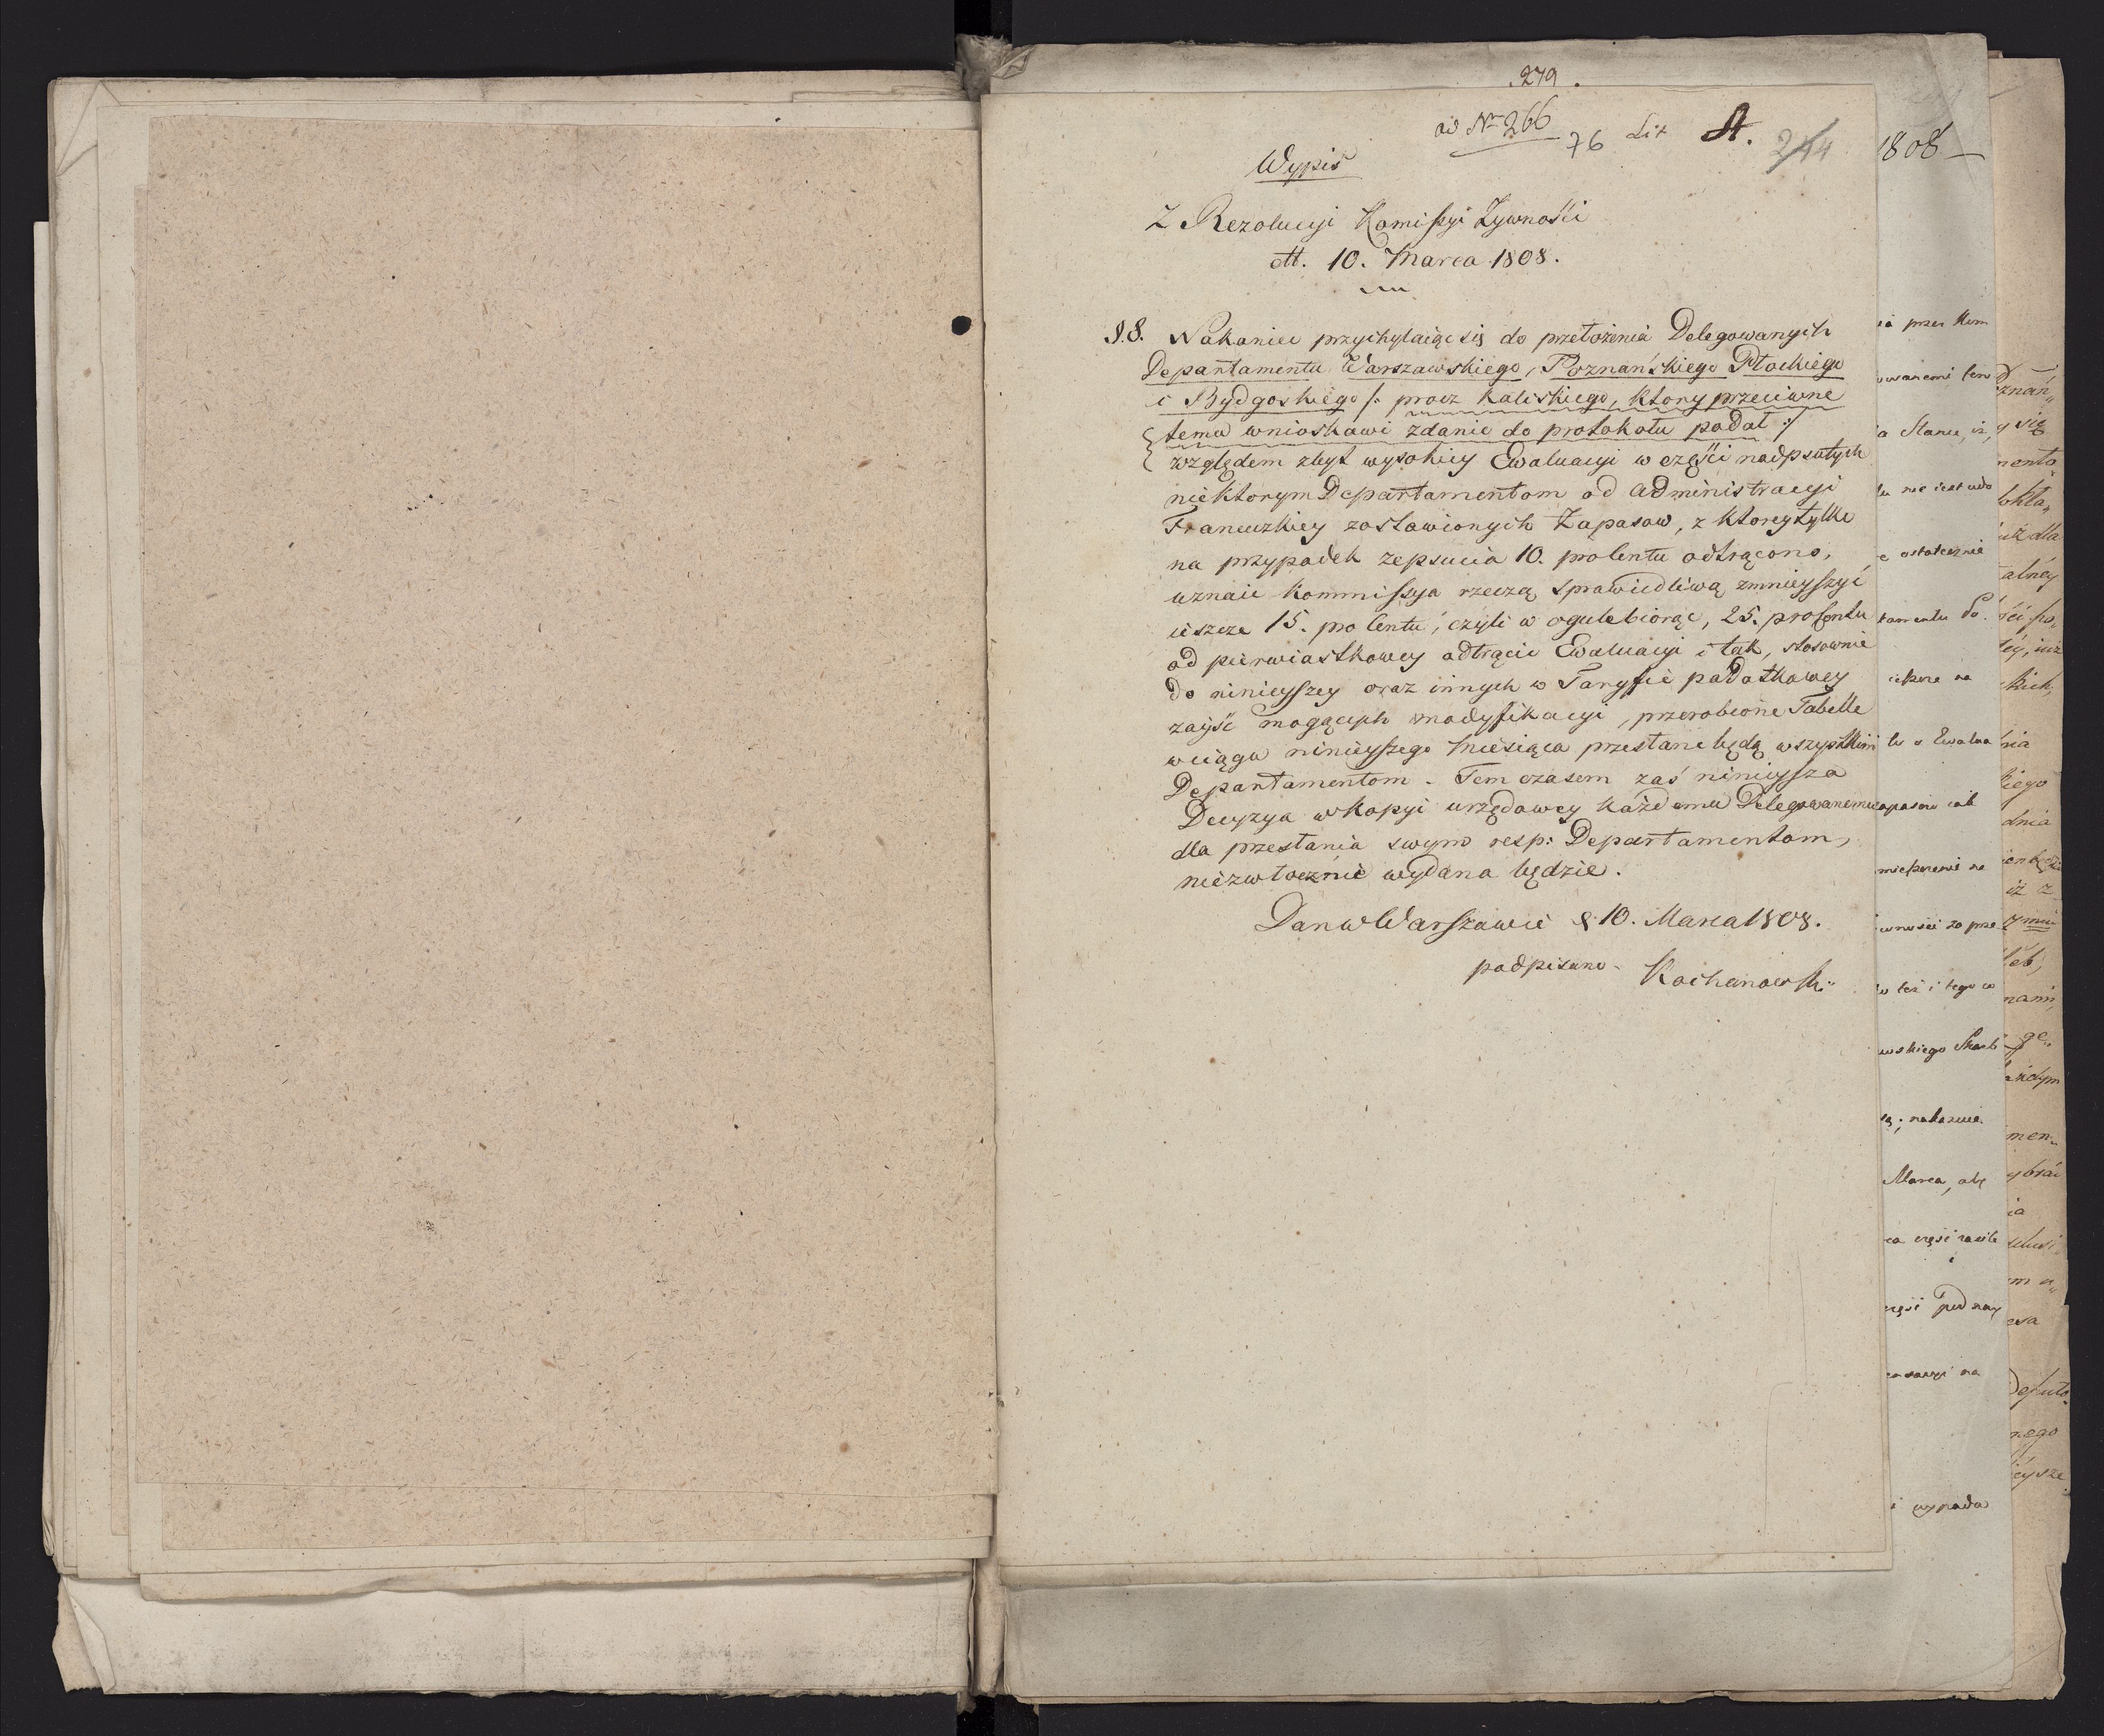 279.
ad Nr 266
76 Lit A. 244
Wypis
Z Rezolucyi Komissyi Żywności
dtt. 10. Marca 1808.
§.8. Nakoniec przychylaiąc się do przełożenia Delegowanych
Departamentu Warszawskiego, Poznańskiego Płockiego
i Bydgoskiego /: procz Kaliskiego, ktory przeciwne
temu wnioskowi zdanie do protokołu podał :/
względem zbyt wysokiey Ewaluacyi w części nadpsutych
niektorym Departamentom od Administracyi
Francuzkiey zostawionych Zapasow, z ktorey tylko
na przypadek zepsucia 10. pro Centu odtrącono,
uznaie Kommissya rzeczą sprawiedliwą zmnieyszyć
ieszcze 15. pro Centu, czyli w ogule biorąc, 25. pro Centu
od pierwiastkowey odtrącić Ewaluacyi i tak, stosownie
do ninieyszey oraz innych w Taryfie podatkowey
zayść mogących modyfikacyi, przerobione Tabelle
w ciągu ninieyszego Miesiąca przesłane będą wszystkim
Departamentom. Tem czasem zaś ninieysza
Decyzya w Kopyi urzędowey każdemu Delegowanemu
dla przesłania swym resp: Departamentom,
niezwłocznie wydana będzie.
Dan w Warszawie d 10. Marca 1808.
podpisano. Kochanowski
1808